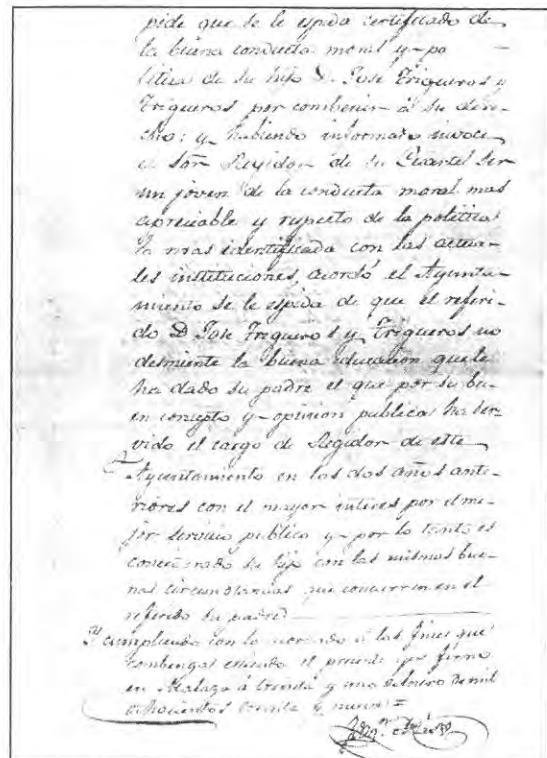 pide que se le espida certificado de
la buena conducta moral y po
litica de su hijo D. Jose Trigueros y
Trigueros por combenir á su dere-
cho; y habiendo informado invoce
el Sõr Regidor de su Cuartel ser
un joven de la conducta moral mas
apreciable y respecto de la politica
la mas identificada con las actua-
les instituciones, acordó el Ayunta-
miento se le espida de que el referi-
do D Jose Trigueros y Trigueros no
desmiente la buena educacion que le
ha dado su padre el que por su bu-
en concepto y opinion publica ha ser-
vido el cargo de Regidor de este
Ayuntamiento en los dos años ante-
riores con el mayor interes por el me-
jor servicio publico y por lo tanto es
considerado su hijo con las mismas bue-
nas circunstancias que concurren en el
referido su padre
Y cumpliendo con lo acordado á los fines que
combengan estiendo el presente que firmo
en Malaga á treinta y uno de Enero de mil
ochocientos treinta y nueve =